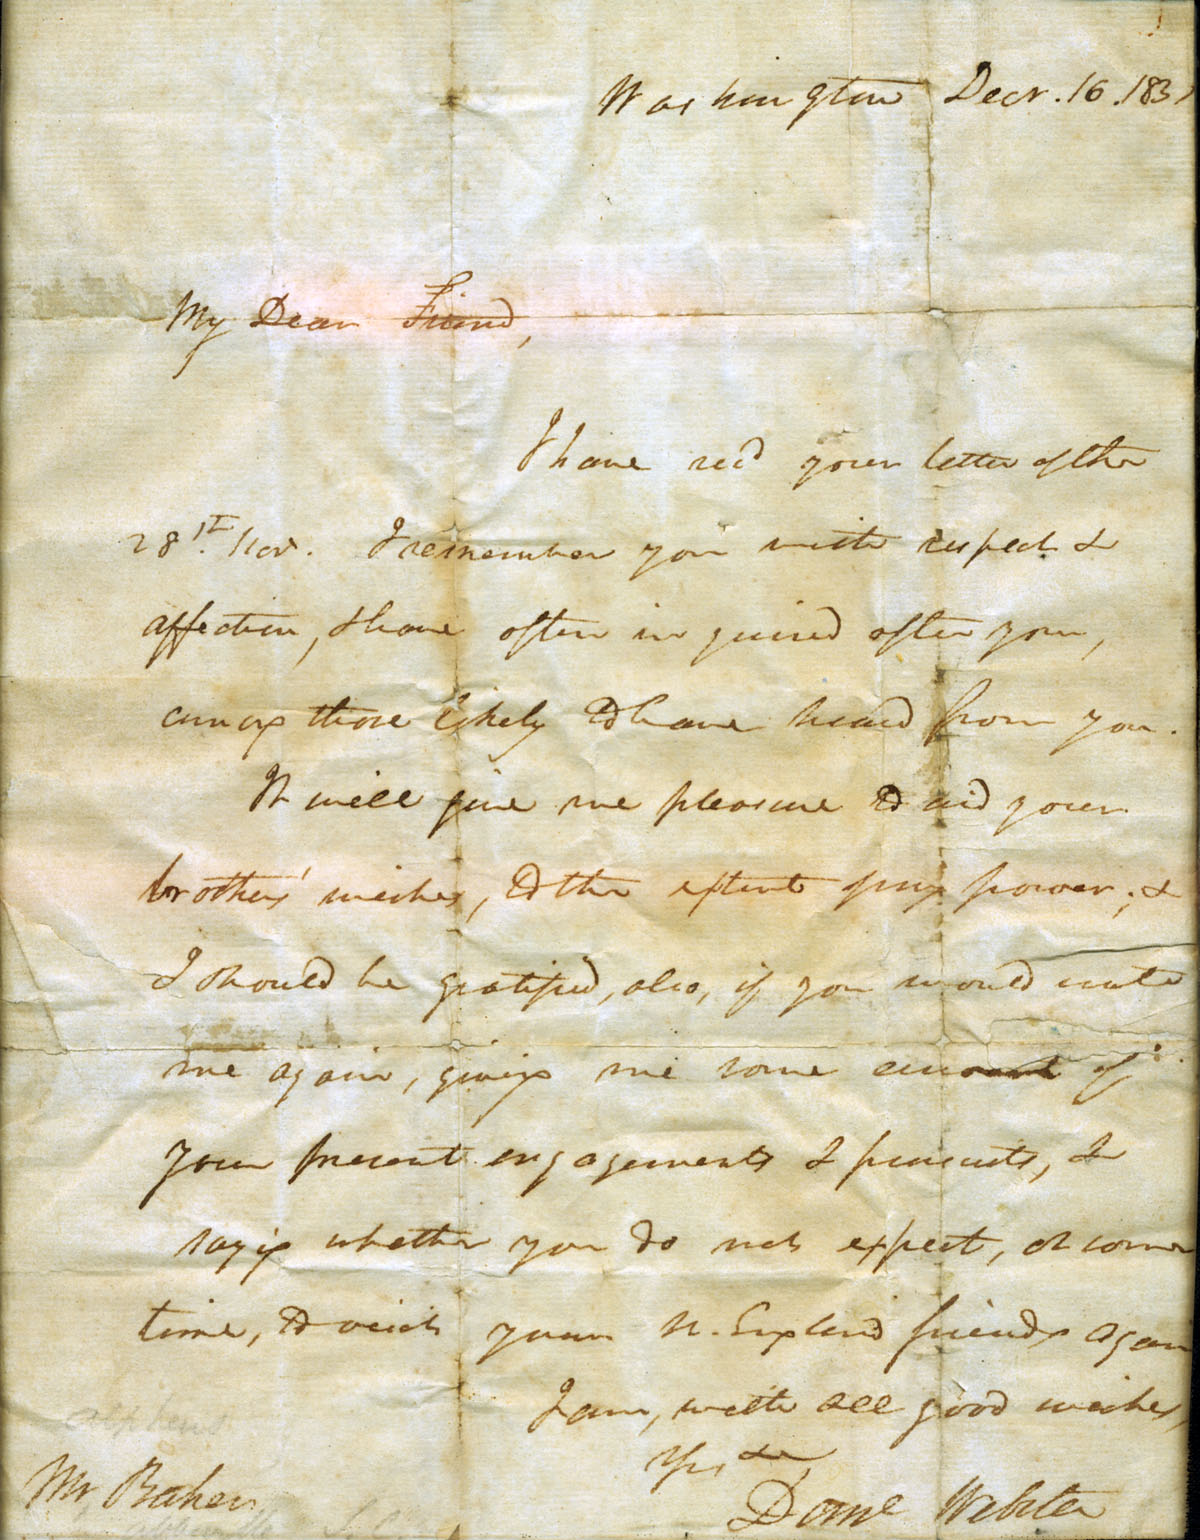 Washington Decr. 16. 183
My Dear Friend,
I have recd your letter of the
28th. Nov. I remember you with respect &
affection, & have often inquired after you,
among those likely to have heard from you.
It will give me pleasure to aid your
brothers' wishes, to the extent of my power; &
I should be gratified, also, if you would write
me again, giving me some account of
your present engagements & pursuits, &
saying whether you do not expect, at some
time, to visit your N. England friends again
I am, with all good wishes,
Yrs &c,
Danl Webster
Alpheus
Mr Baker
Abbeville S.C.